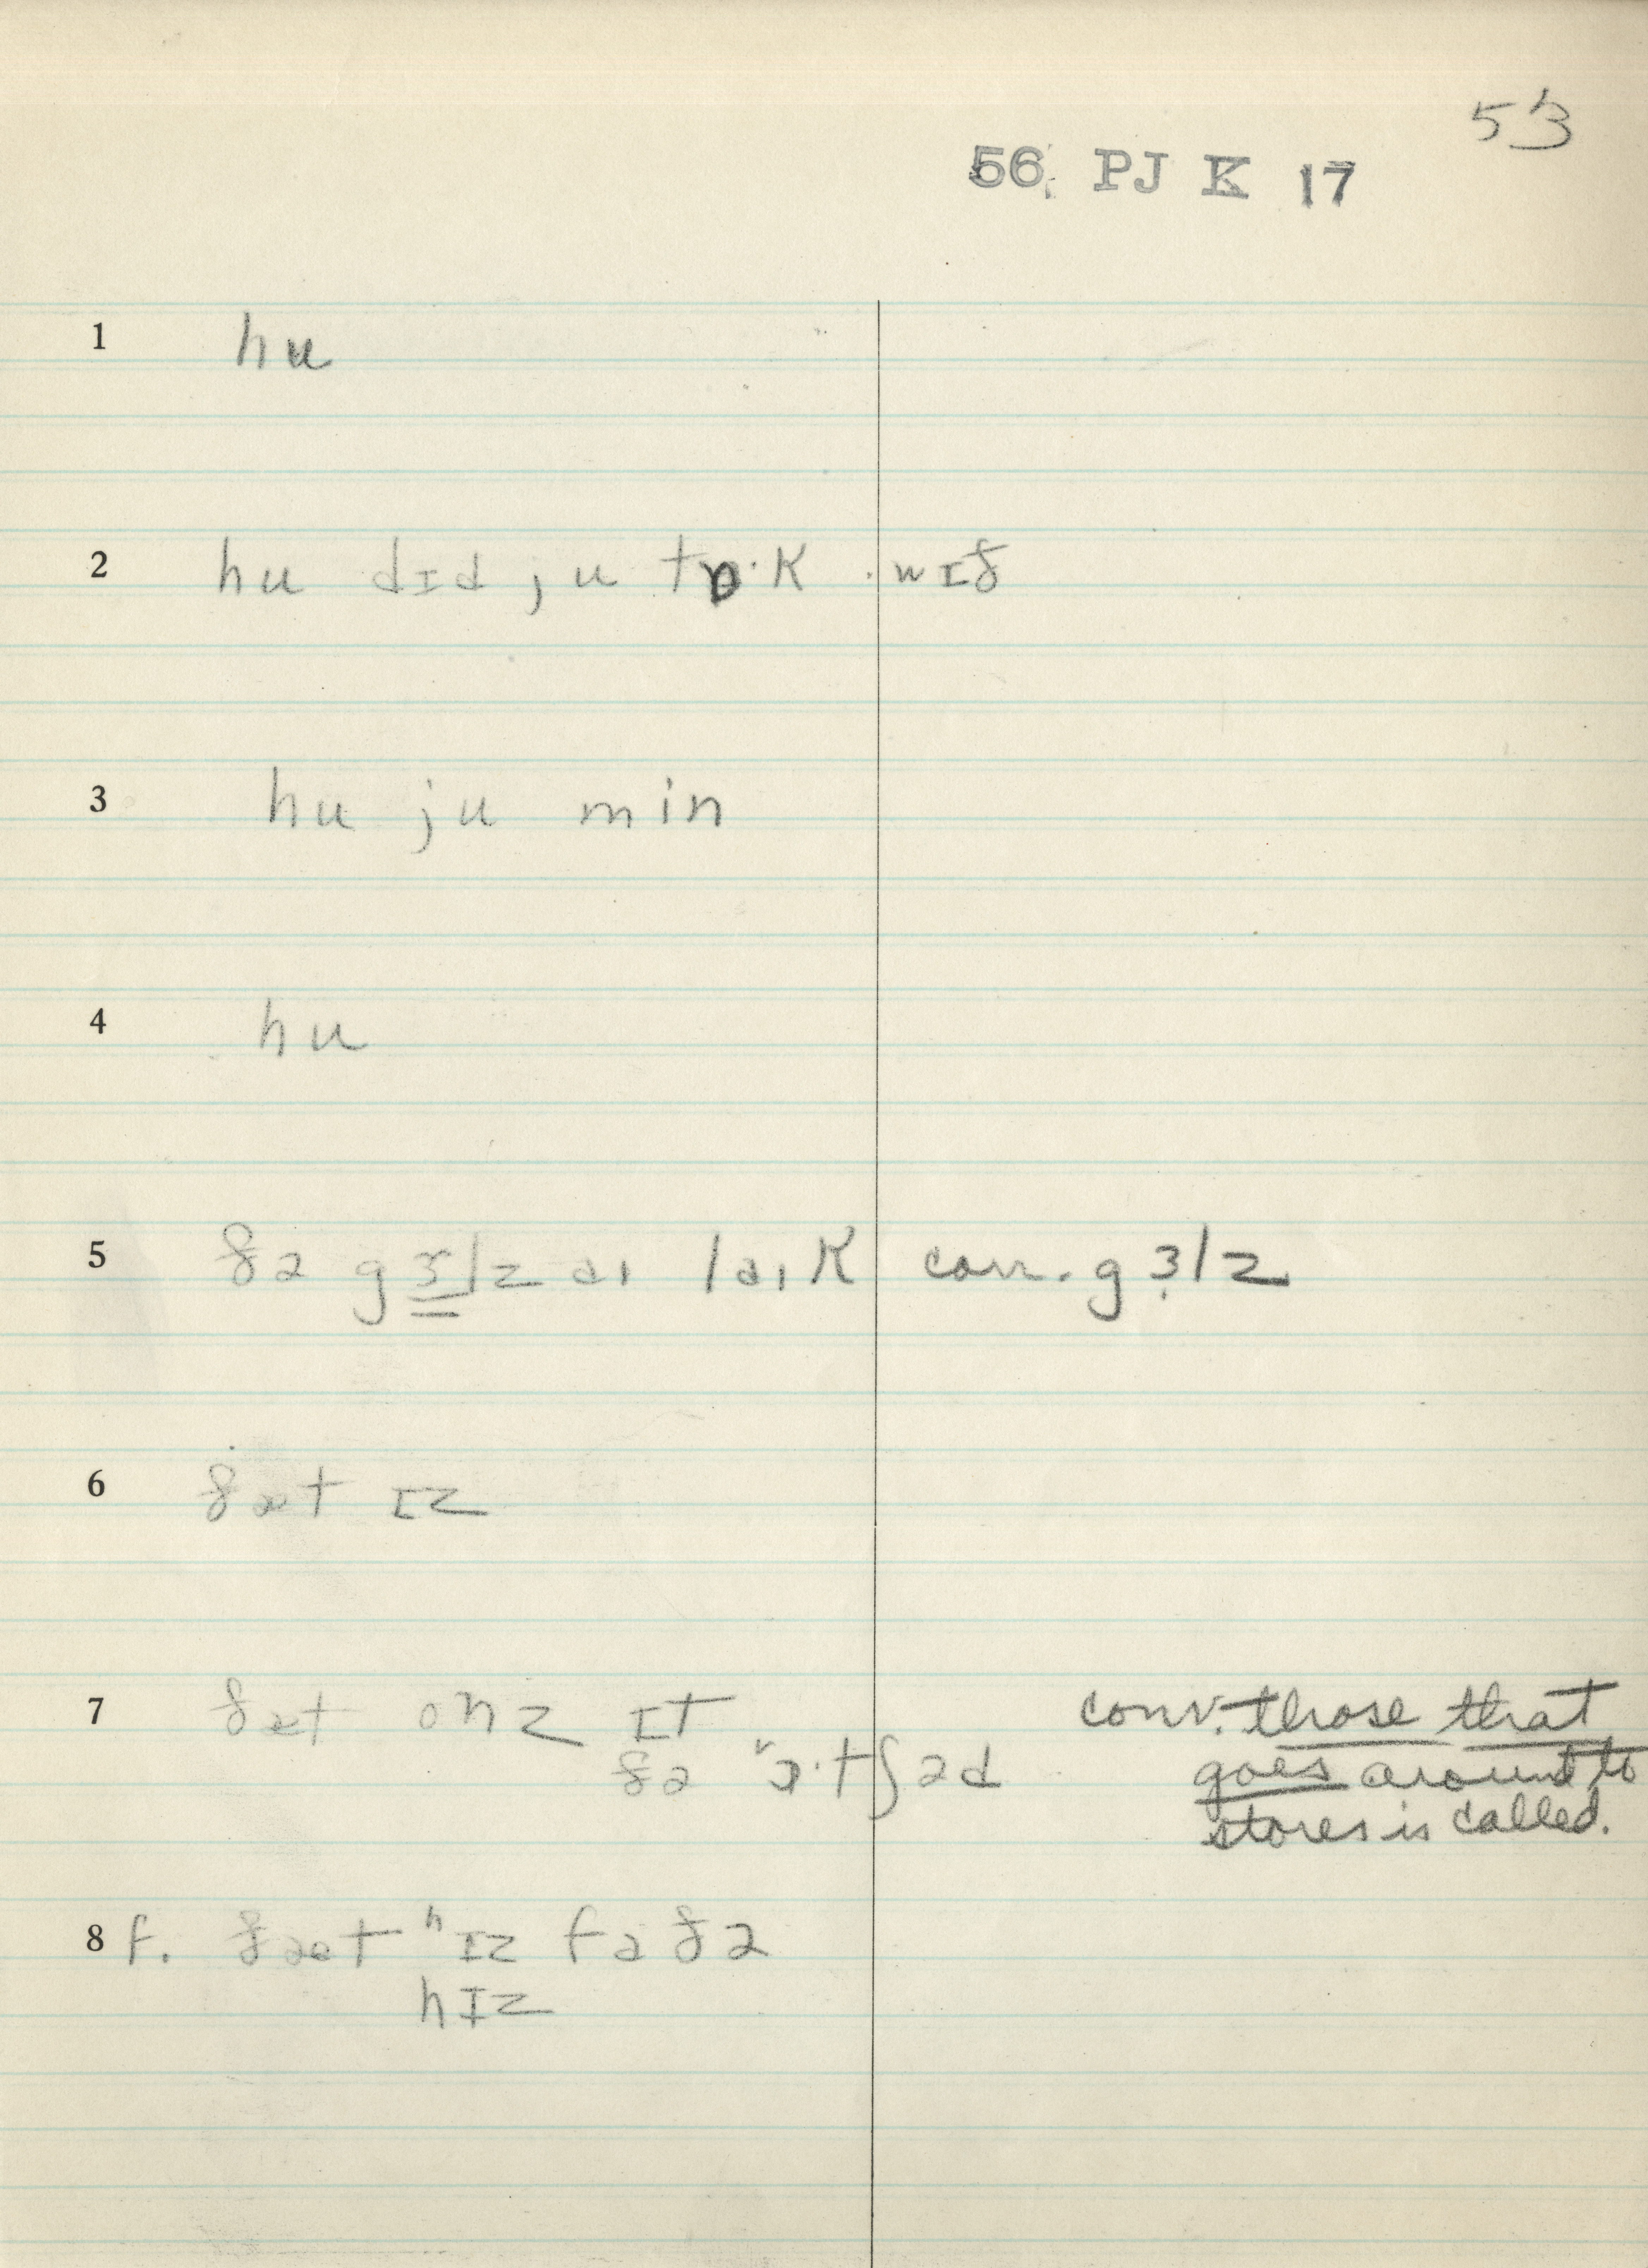 53
56 PJ K 17
1 hu
2 hu dɪd ju tɒ·k wɪð
3 hu ju min
4 hu
5 ðə gɜlz aɪ laɪk corr. gɜlz
6 ðæt ɪz
7 ðæt onz ɪt
ðə ɔ·tʃəd
conv. those that
goes around to
stores is called.
8 f. ðæt ʰɪz fɑðə
hɪz